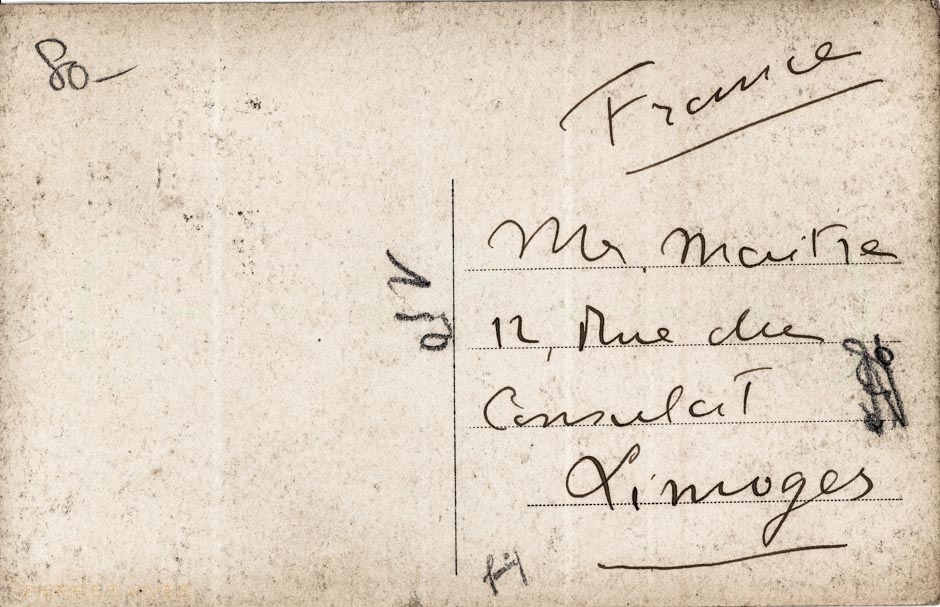 80-
France
Mr. Maitre
12, Rue du
Consulat
Limoges